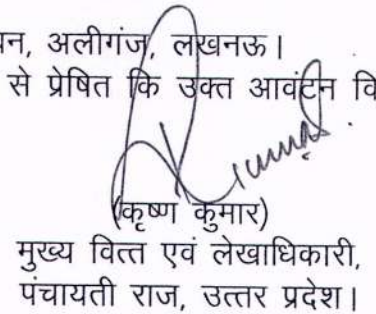 न, अलीगंज, लखनऊ।
से प्रेषित कि उक्त आवंटन वि
Kumar
(कृष्ण कुमार)
मुख्य वित्त एवं लेखाधिकारी,
पंचायती राज, उत्तर प्रदेश।